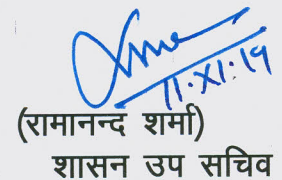 11.XI.19
(रामानन्द शर्मा)
शासन उप सचिव